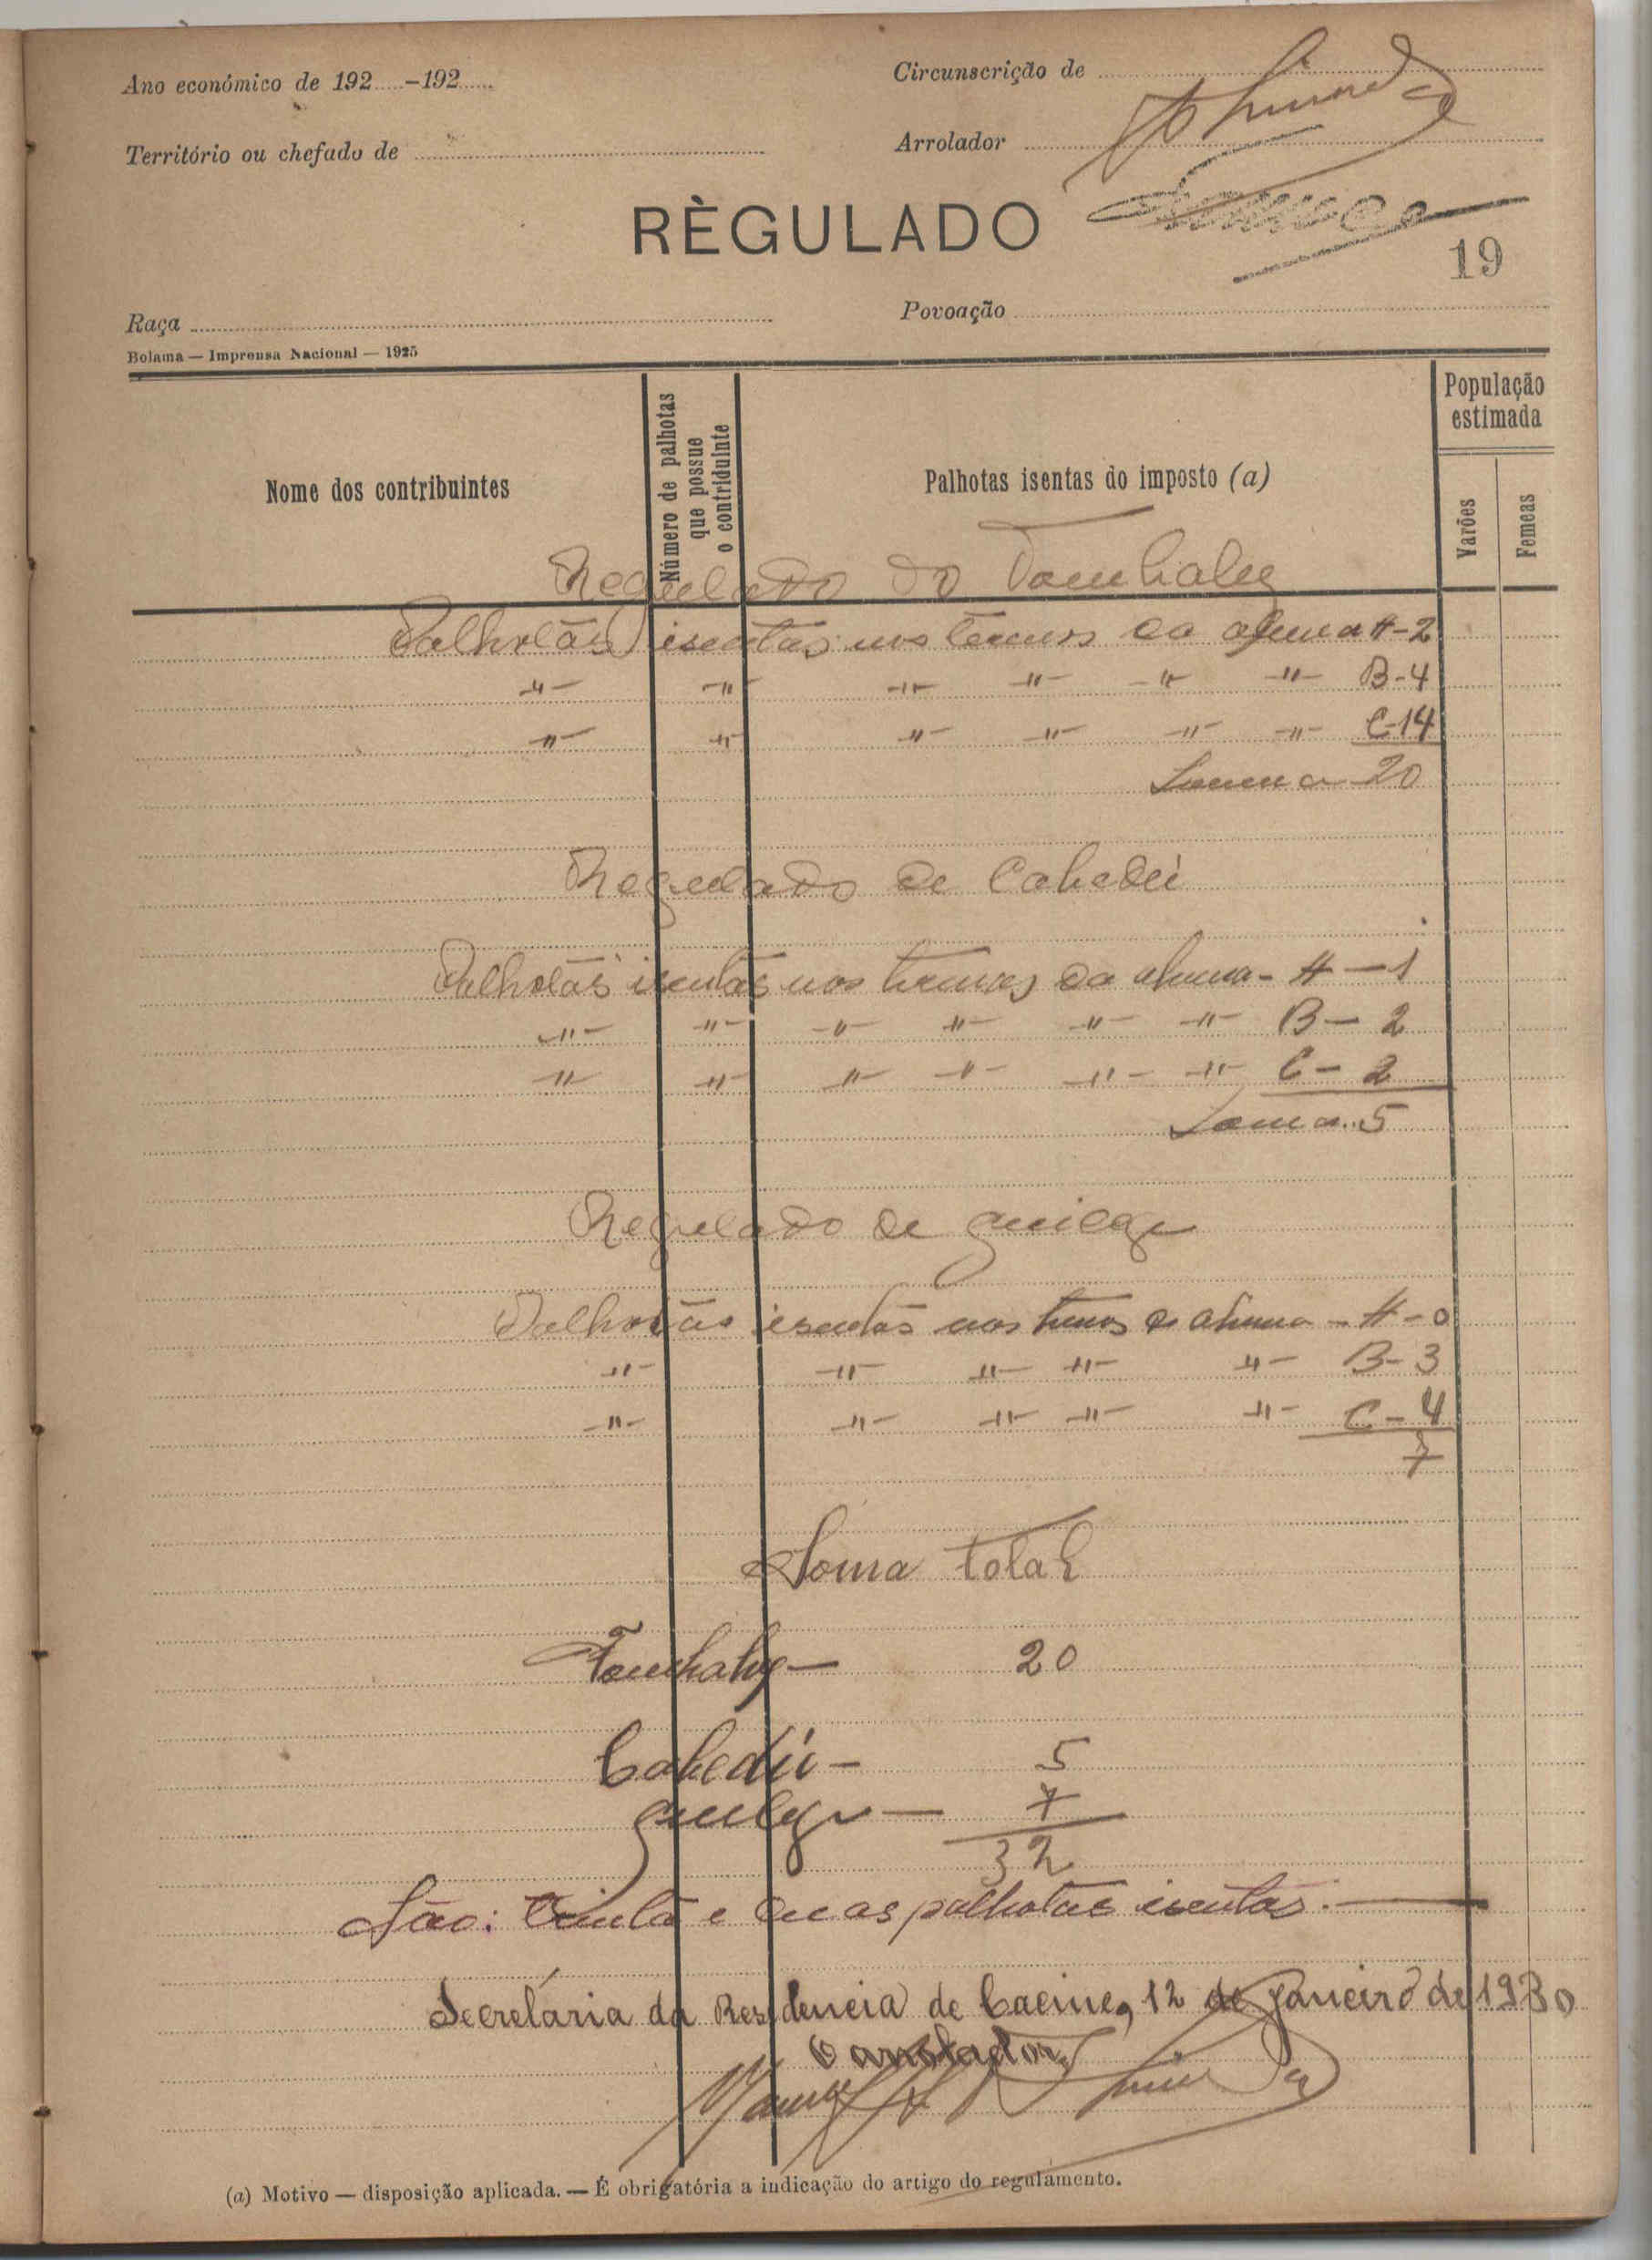 Ano económico de 192.....-192.....
Circunscrição de
Território ou chefado de
Arrolador
RÈGULADO
19
Raça
Povoação
Bolama — Imprensa Nacional — 1925
Nome dos contribuintes
Número de palhotas que possue o contriduinte
Palhotas isentas do imposto (a)
População estimada
Varões
Femeas
Regulado do
Palhotas isentas nos termos da alinea A-2
-"- -"- -"- -"- -"- -"- B-4
-"- -"- -"- -"- -"- -"- C-14
Somma-20
Regulado de Cabedú
Palhotas isentas nos termos da alinea - A - 1
-"- -"- -"- -"- -"- -"- B - 2
-"- -"- -"- -"- -"- -"- C - 2
Soma..5
Regulado de Guilege
Palhotas isentas nos termos da alinea - A - 0
-"- -"- -"- -"- -"- B - 3
-"- -"- -"- -"- -"- C - 4
7
Soma total
20
Cabedú - 5
Guilege - 7
32
São: trinta e duas palhotas isentas. —
Secretaria da Residencia de Cacine, 12 de Janeiro de 1930
(a) Motivo — disposição aplicada. — É obrigatória a indicação do artigo do regulamento.